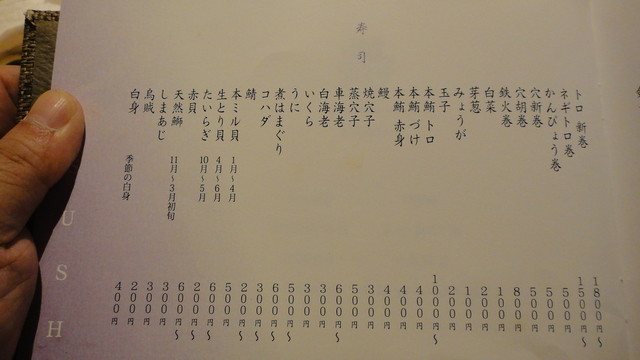 寿司
トロ 新巻 1800円〜
ネギトロ巻 1500円〜
かんぴょう巻 500円
穴新巻 500円
穴胡巻 500円
鉄火巻 800円
白菜 100円
芽葱 200円
みょうが 100円
玉子 200円
本鮪 トロ 1000円〜
本鮪 づけ 400円
本鮪 赤身 400円
鰻 400円
焼穴子 300円
蒸穴子 500円
車海老 600円〜
白海老 300円
いくら 300円
うに 500円〜
煮はまぐり 600円〜
コハダ 300円〜
鯖 200円〜
本ミル貝 1月〜4月 500円
生とり貝 4月〜6月 600円〜
たいらぎ 10月〜5月 200円〜
赤貝 600円〜
天然鰤 11月〜3月初旬 300円
しまあじ 300円
烏賊 200円
白身 季節の白身 400円
USH